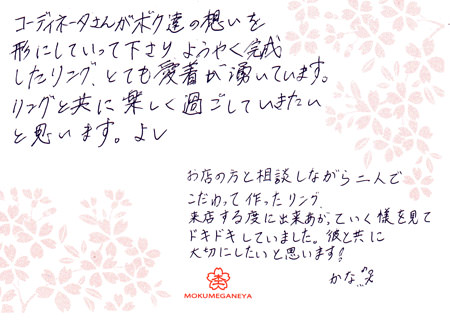 コーディネータさんがボク達の想いを
形にしていって下さり ようやく完成
したリング、とても愛着が湧いています。
リングと共に楽しく過ごしていきたい
と思います。よし
お店の方と相談しながら二人で
こだわって作ったリング
来店する度に出来あがっていく様を見て
ドキドキしていました。彼と共に
大切にしたいと思います!
かな
MOKUMEGANEYA